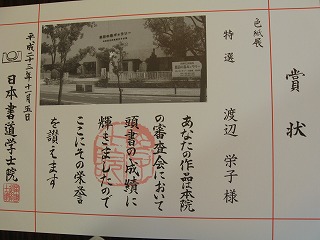 賞状
色紙展
特選 渡辺 栄子 様
あなたの作品は本院
の審査会において
頭書の成績に
輝きましたので
ここにその栄誉
を讃えます
平成二十三年十一月五日
日本書道学士院